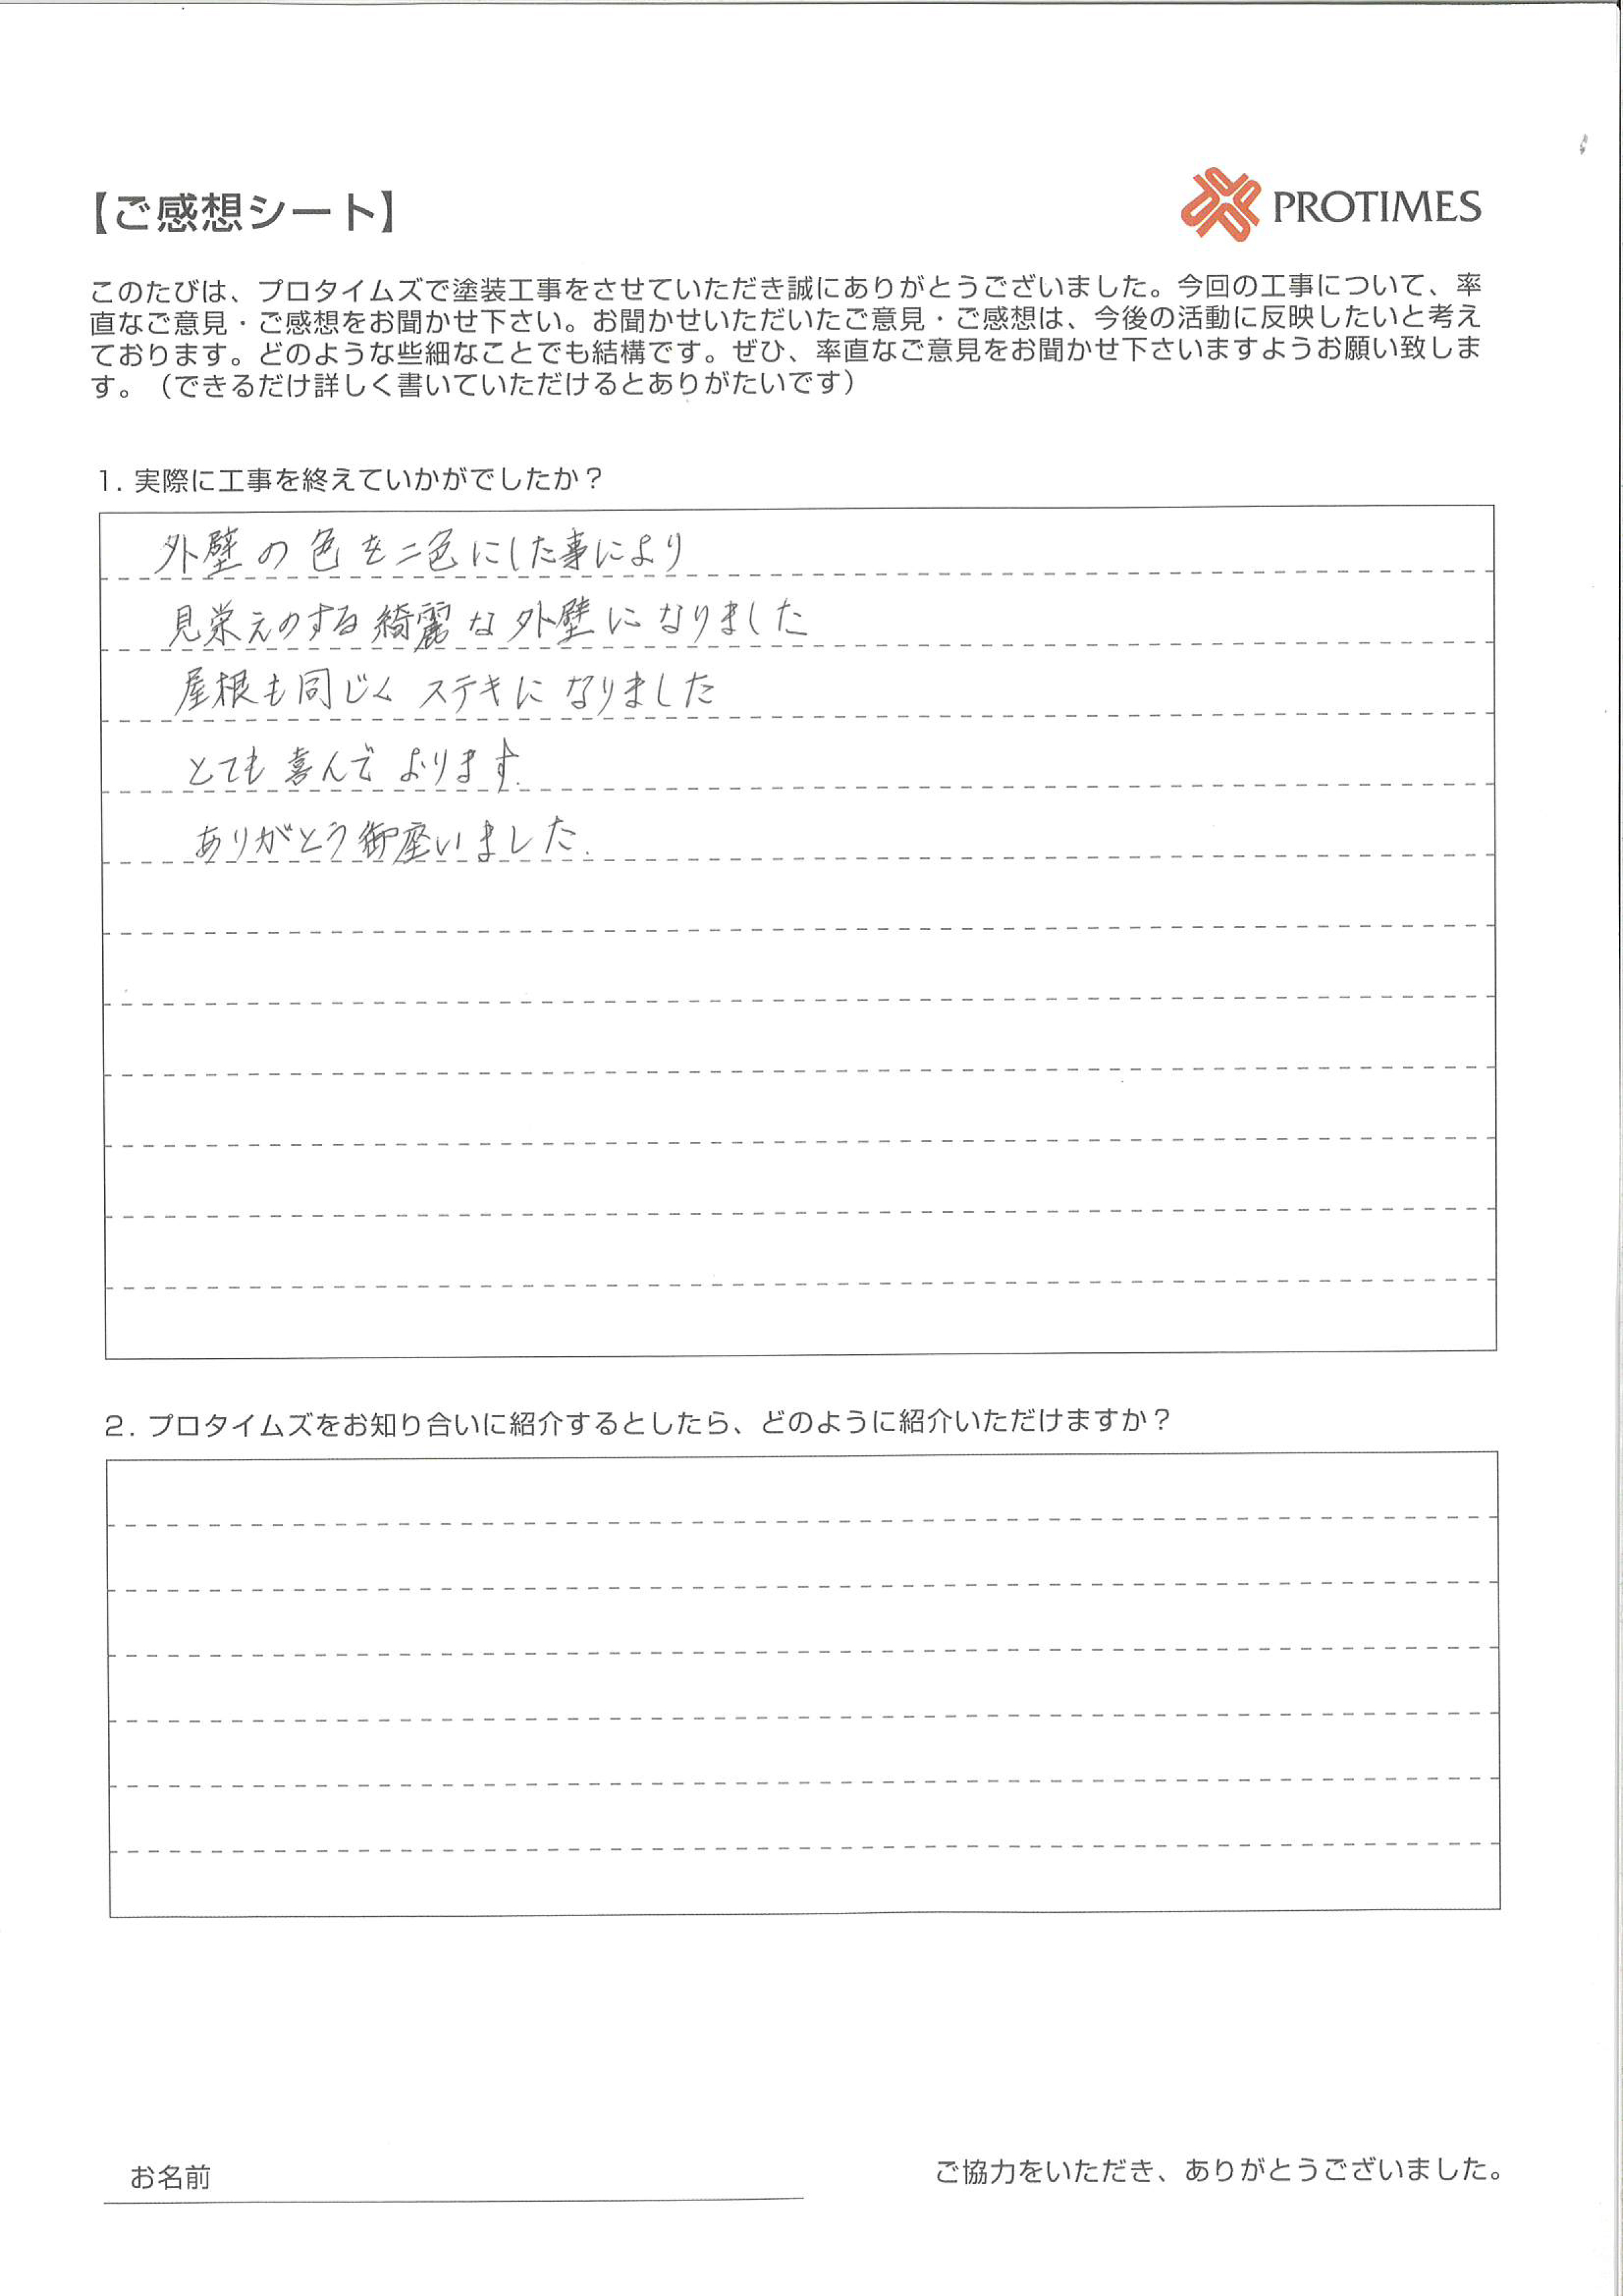 【ご感想シート】
PROTIMES
このたびは、プロタイムズで塗装工事をさせていただき誠にありがとうございました。今回の工事について、率
直なご意見・ご感想をお聞かせ下さい。お聞かせいただいたご意見・ご感想は、今後の活動に反映したいと考え
ております。どのような些細なことでも結構です。ぜひ、率直なご意見をお聞かせ下さいますようお願い致しま
す。（できるだけ詳しく書いていただけるとありがたいです）
1. 実際に工事を終えていかがでしたか？
外壁の色を二色にした事により
見栄えのする綺麗な外壁になりました
屋根も同じくステキになりました
とても喜んでおります.
ありがとう御座いました.
2. プロタイムズをお知り合いに紹介するとしたら、どのように紹介いただけますか？
お名前
ご協力をいただき、ありがとうございました。